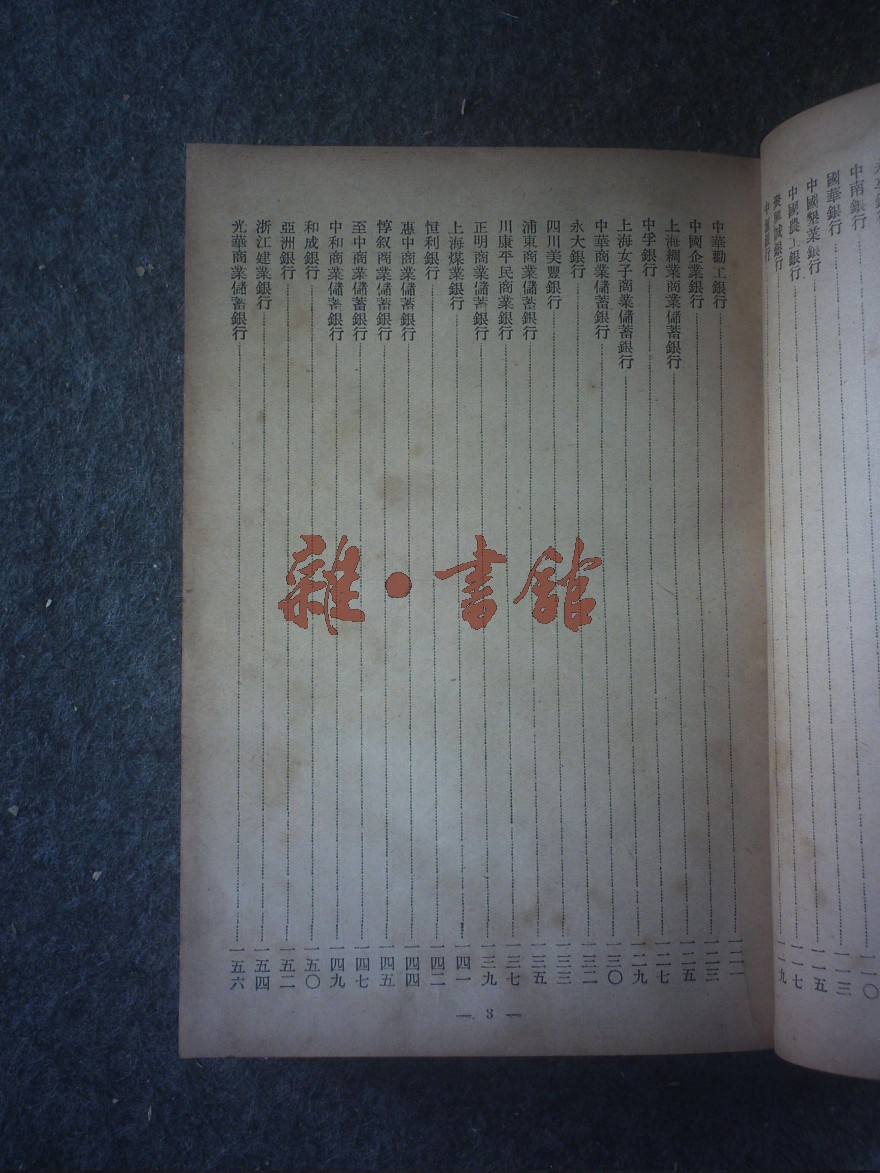 中南銀行
國華銀行 一一三
中國墾業銀行 一一五
中國農工銀行 一一七
銀行 一一九
中華勸工銀行 一二一
中國企業銀行 一二三
上海綢業商業儲蓄銀行 一二五
中孚銀行 一二七
上海女子商業儲蓄銀行 一二九
中華商業儲蓄銀行 一三〇
永大銀行 一三二
四川美豐銀行 一三三
浦東商業儲蓄銀行 一三五
川康平民商業銀行 一三七
正明商業儲蓄銀行 一三九
上海煤業銀行 一四一
恒利銀行 一四二
惠中商業儲蓄銀行 一四四
惇叙商業儲蓄銀行 一四五
至中商業儲蓄銀行 一四七
中和商業儲蓄銀行 一四九
和成銀行 一五〇
亞洲銀行 一五二
浙江建業銀行 一五四
光華商業儲蓄銀行 一五六
— 3 —
雜·書館